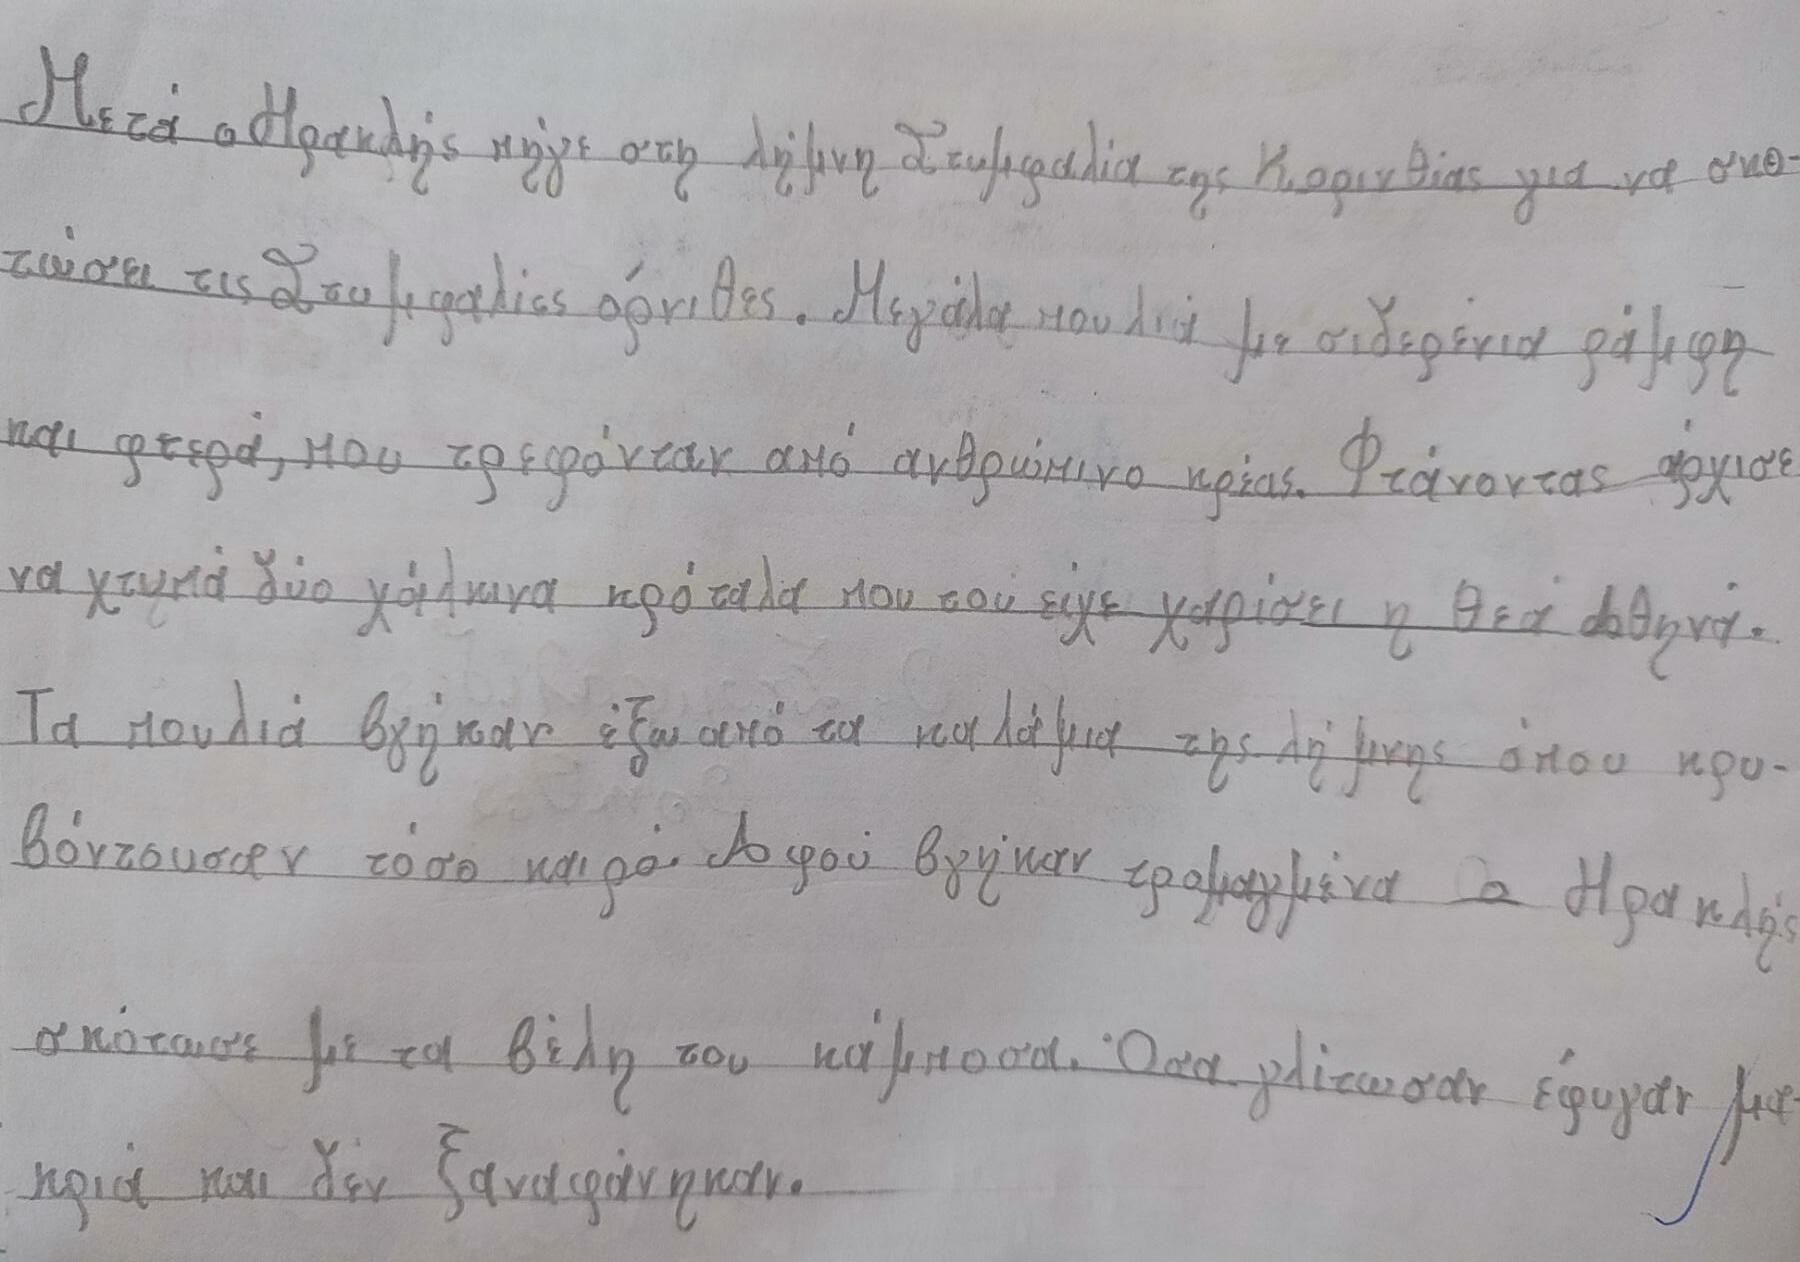 Μετά ο Ηρακλής πήγε στη λήμνη Στυμφαλία της Κορινθίας για να σκο-
τώσει τις Στυμφαλίες όρνιθες. Μεγάλα πουλιά με σιδερένια ράμφη
και φτερά, που τρεφόνταν από ανθρώπινο κρέας. Φτάνοντας άρχισε
να χτυπά δύο χάλκινα κρόταλα που του είχε χαρίσει η θεά Αθηνά.
Τα πουλιά βγήκαν έξω από τα καλάμια της λήμνης όπου κρυ-
βόντουσαν τόσο καιρό. Αφού βγήκαν τρομαγμένα ο Ηρακλής
σκότωσε με τα βέλη του κάμποσα. Όσα γλίτωσαν έφυγαν μα-
κριά και δέν ξαναφάνηκαν.